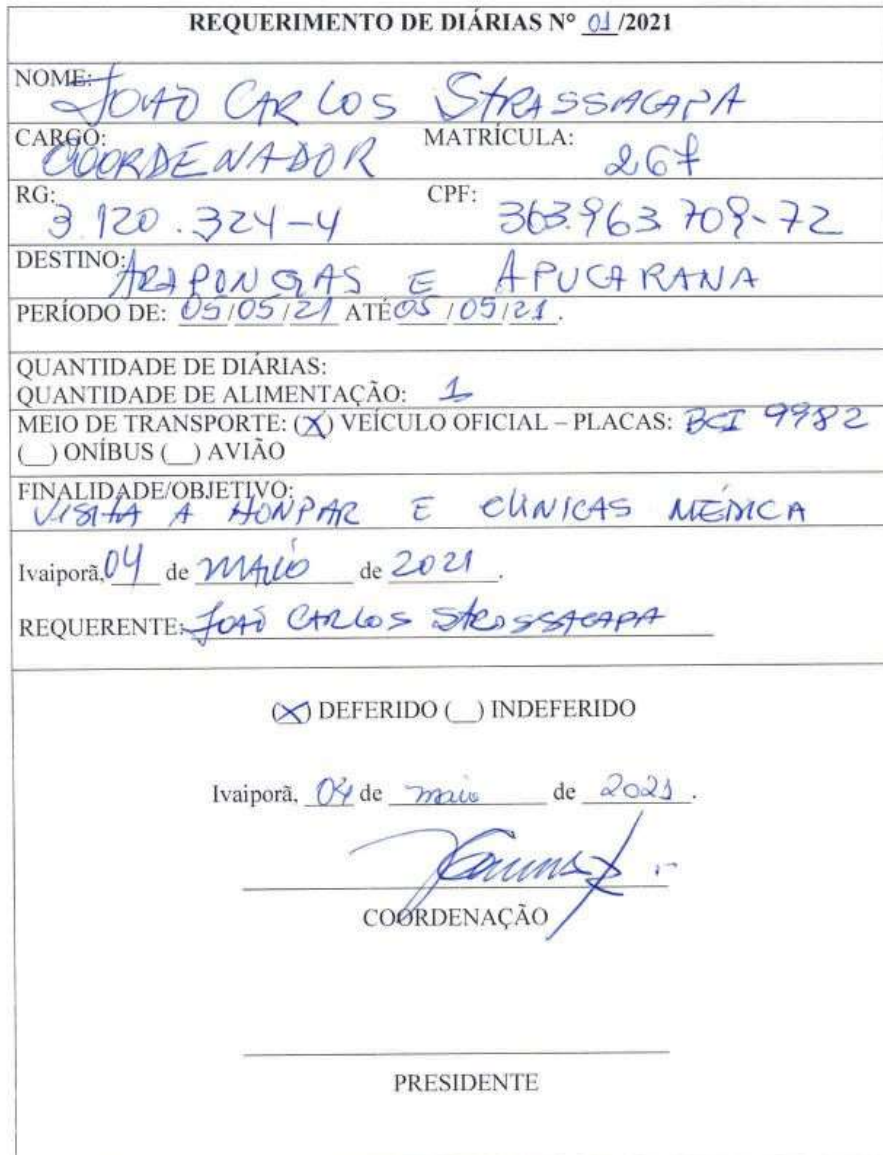 REQUERIMENTO DE DIÁRIAS Nº 01/2021
NOME: JOAO CARLOS STRASSACAPA
CARGO: COORDENADOR MATRÍCULA: 267
RG: 3.120.324-4 CPF: 363.963.709-72
DESTINO: ARAPONGAS E APUCARANA
PERÍODO DE: 05/05/21 ATÉ 05/05/21.
QUANTIDADE DE DIÁRIAS:
QUANTIDADE DE ALIMENTAÇÃO: 1
MEIO DE TRANSPORTE: (X) VEÍCULO OFICIAL – PLACAS: BCI 9982
(__) ONÍBUS (__) AVIÃO
FINALIDADE/OBJETIVO:
VISITA A HONPAR E CLINICAS MÉDICA
Ivaiporã, 04 de MAIO de 2021.
REQUERENTE: JOAO CARLOS STRASSACAPA
(X) DEFERIDO (__) INDEFERIDO
Ivaiporã, 04 de maio de 2021.
COORDENAÇÃO
PRESIDENTE